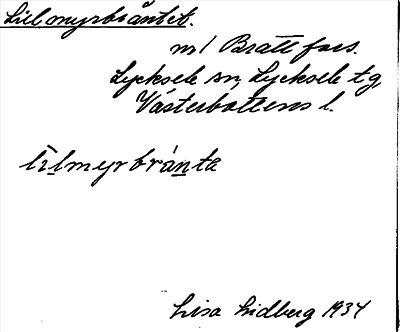 Lillmyrbråntet.
m/ Brattfors.
Lycksele sn, Lycksele tg,
Västerbottens l.
lìlmyrbrånta
Lisa Lidberg 1934